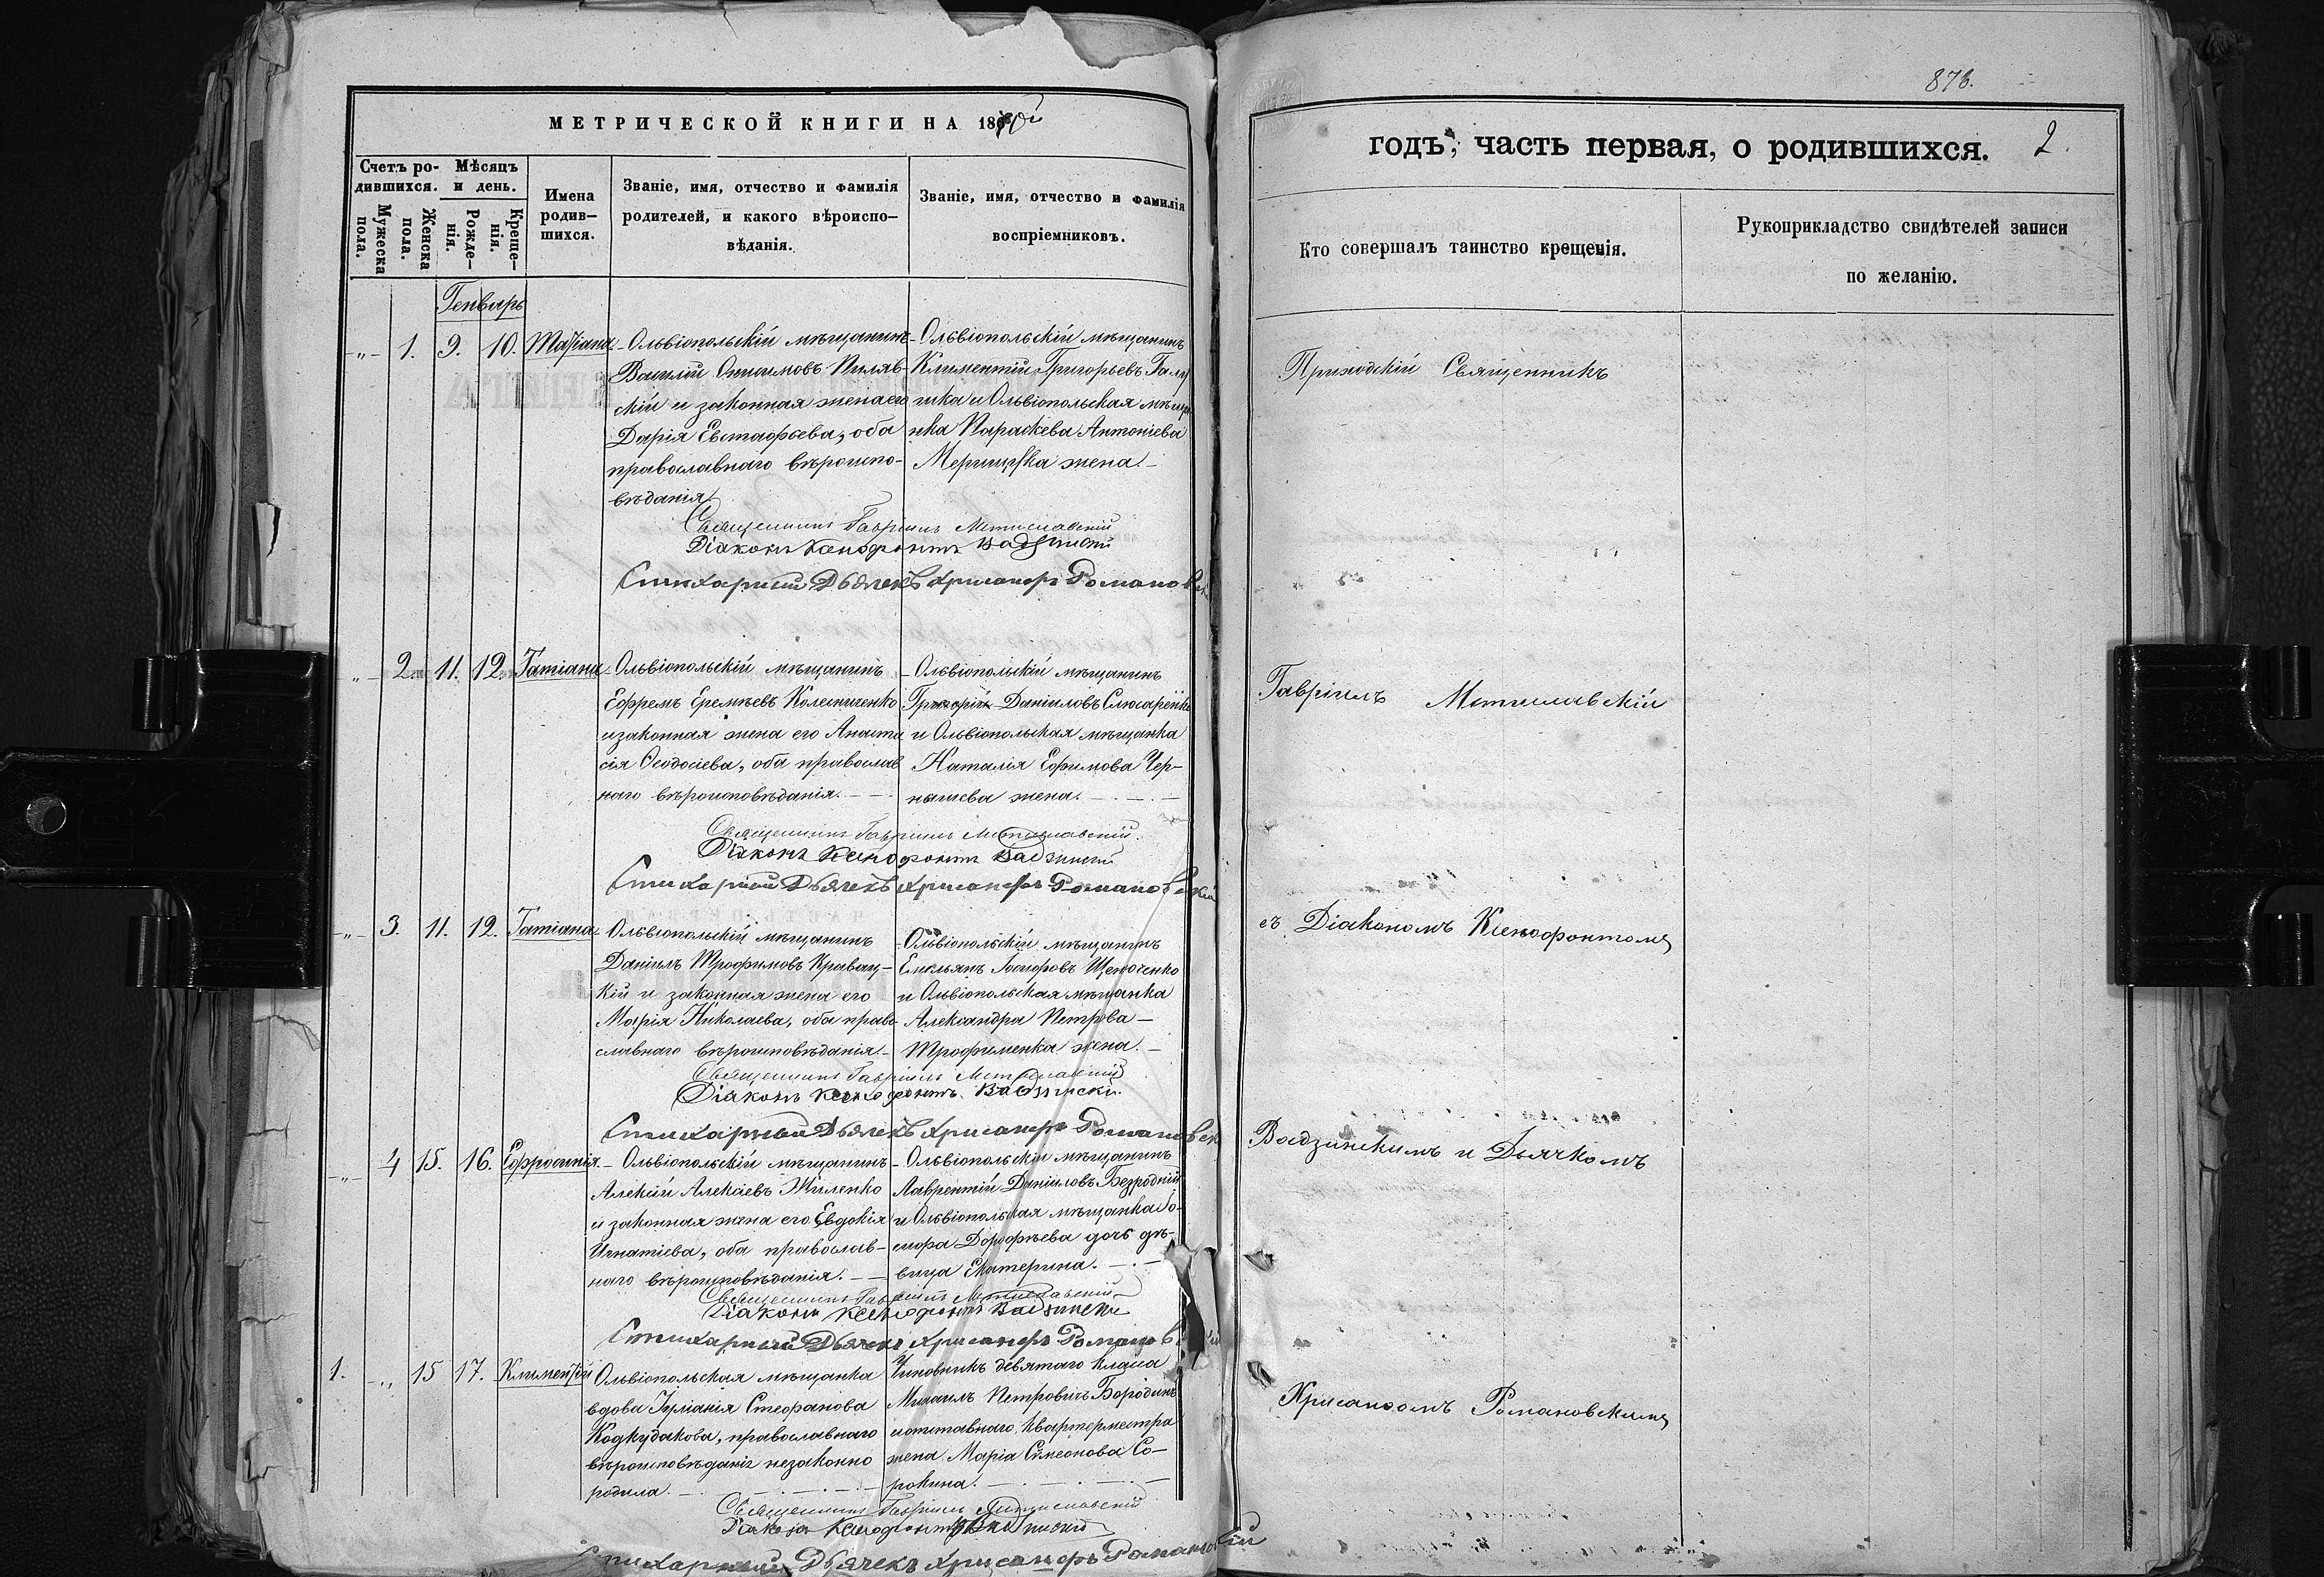 МЕТРИЧЕСКОЙ КНИГИ НА 18
Счетъ ро-
дившихся.
Мужеска
пола.
Женска
пола.
Мѣсяцъ
и день.
Рожде-
нія.
Креще-
нія.
Имена
родив-
шихся.
Званіе, имя, отчество и фамилія
родителей, и какого вѣроиспо-
вѣданія.
Званіе, имя, отчество и фамилія
воспріемниковъ.
Генварь
1. 9. 10.
Ольвіопольскій мѣщанинъ
Василій Онисимовъ
скій и законная жена его
Дарія Евстафьева, оба
православнаго вѣроиспо-
вѣданія.
Ольвіопольскій мѣщанинъ
Климентій Григорьевъ
и Ольвіопольская мѣща
нка Параскева Антоніева
жена.
Священникъ Гавріилъ Мстиславскій
Діаконъ Ксенофонтъ Вадзинскій
Стихарный Дьячекъ Хрисанфъ Романовскій
2 11. 12. Татіана
Ольвіопольскій мѣщанинъ
Ефремъ Еремѣевъ Колесниченко
и законная жена его Анаста
сія Ѳеодосіева, оба православ
наго вѣроисповѣданія.
Ольвіопольскій мѣщанинъ
Григорій Даніиловъ Слюсаренко
и Ольвіопольская мѣщанка
Наталія Ефимова Чер-
нышева жена.
Священникъ Гавріилъ Мстиславскій
Діаконъ Ксенофонтъ Вадзинскій
Стихарный Дьячекъ Хрисанфъ Романовскій
3. 11. 12. Татіана
Ольвіопольскій мѣщанинъ
Даніилъ Трофимовъ Кравец-
кій и законная жена его
Марія Николаева, оба право
славнаго вѣроисповѣданія.
Ольвіопольскій мѣщанинъ
Емельянъ Іосифовъ
и Ольвіопольская мѣщанка
Александра Петрова
Трофименка жена.
Священникъ Гавріилъ Мстиславскій
Діаконъ Ксенофонтъ Вадзинскій
Стихарный Дьячекъ Хрисанфъ Романовск
4 15. 16. Ефросинія
Ольвіопольскій мѣщанинъ
Алексій Алексіевъ Жиленко
и законная жена его Евдокія
Игнатіева, оба православ-
наго вѣроисповѣданія.
Ольвіопольскій мѣщанинъ
Лаврентій Даніиловъ Безродній
и Ольвіопольская мѣщанка
Дорофѣева дочь дѣ-
вица Екатерина.
Священникъ Гавріилъ Мстиславскій
Діаконъ Ксенофонтъ Вадзинскій
Стихарный Дьячекъ Хрисанфъ Романовскій
1. 15 17. Климентій
Ольвіопольская мѣщанка
вдова Стефанова
Кодкудакова, православнаго
вѣроисповѣданія незаконно
родила.
Чиновникъ девятаго класа
Михаилъ Петровичъ Бородинъ
и отставнаго Квартермистра
жена Марія Симеонова Со-
рокина.
Священникъ Гавріилъ Мстиславскій
Діаконъ Ксенофонтъ Вадзинскій
Стихарный Дьячекъ Хрисанфъ Романовскій
873.
годъ, часть первая, о родившихся. 2.
Кто совершалъ таинство крещенія.
Рукоприкладство свидѣтелей записи
по желанію.
Приходскій Священникъ
Гавріилъ Мстиславскій
съ Діакономъ Ксенофонтомъ
Вадзинскимъ и Дьячкомъ
Хрисанфомъ Романовскимъ